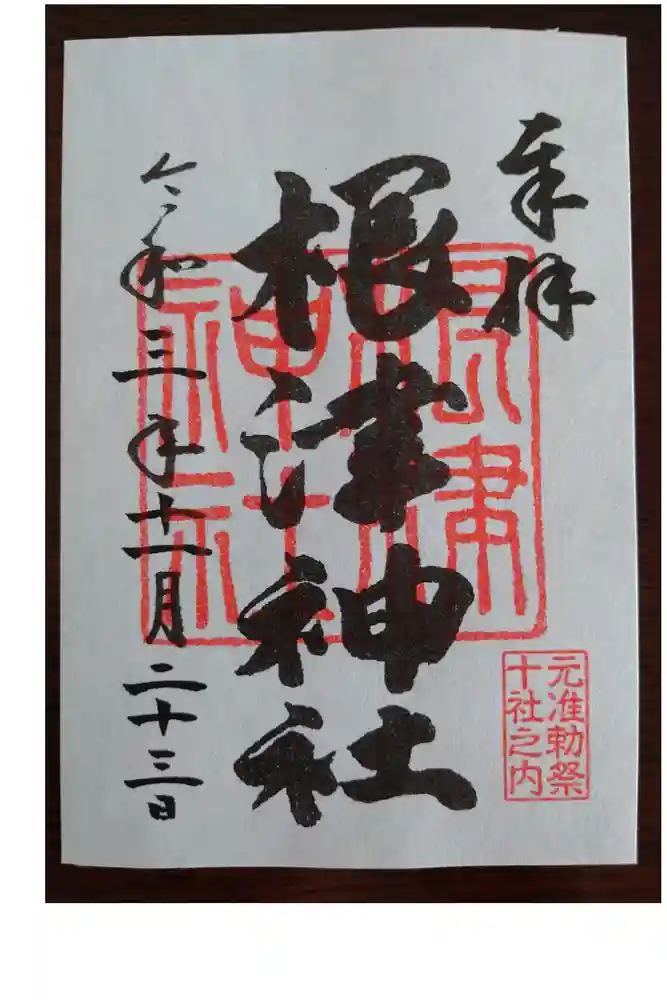 奉拝
根津神社
根津
神社
令和三年十一月二十三日
元准勅祭
十社之内